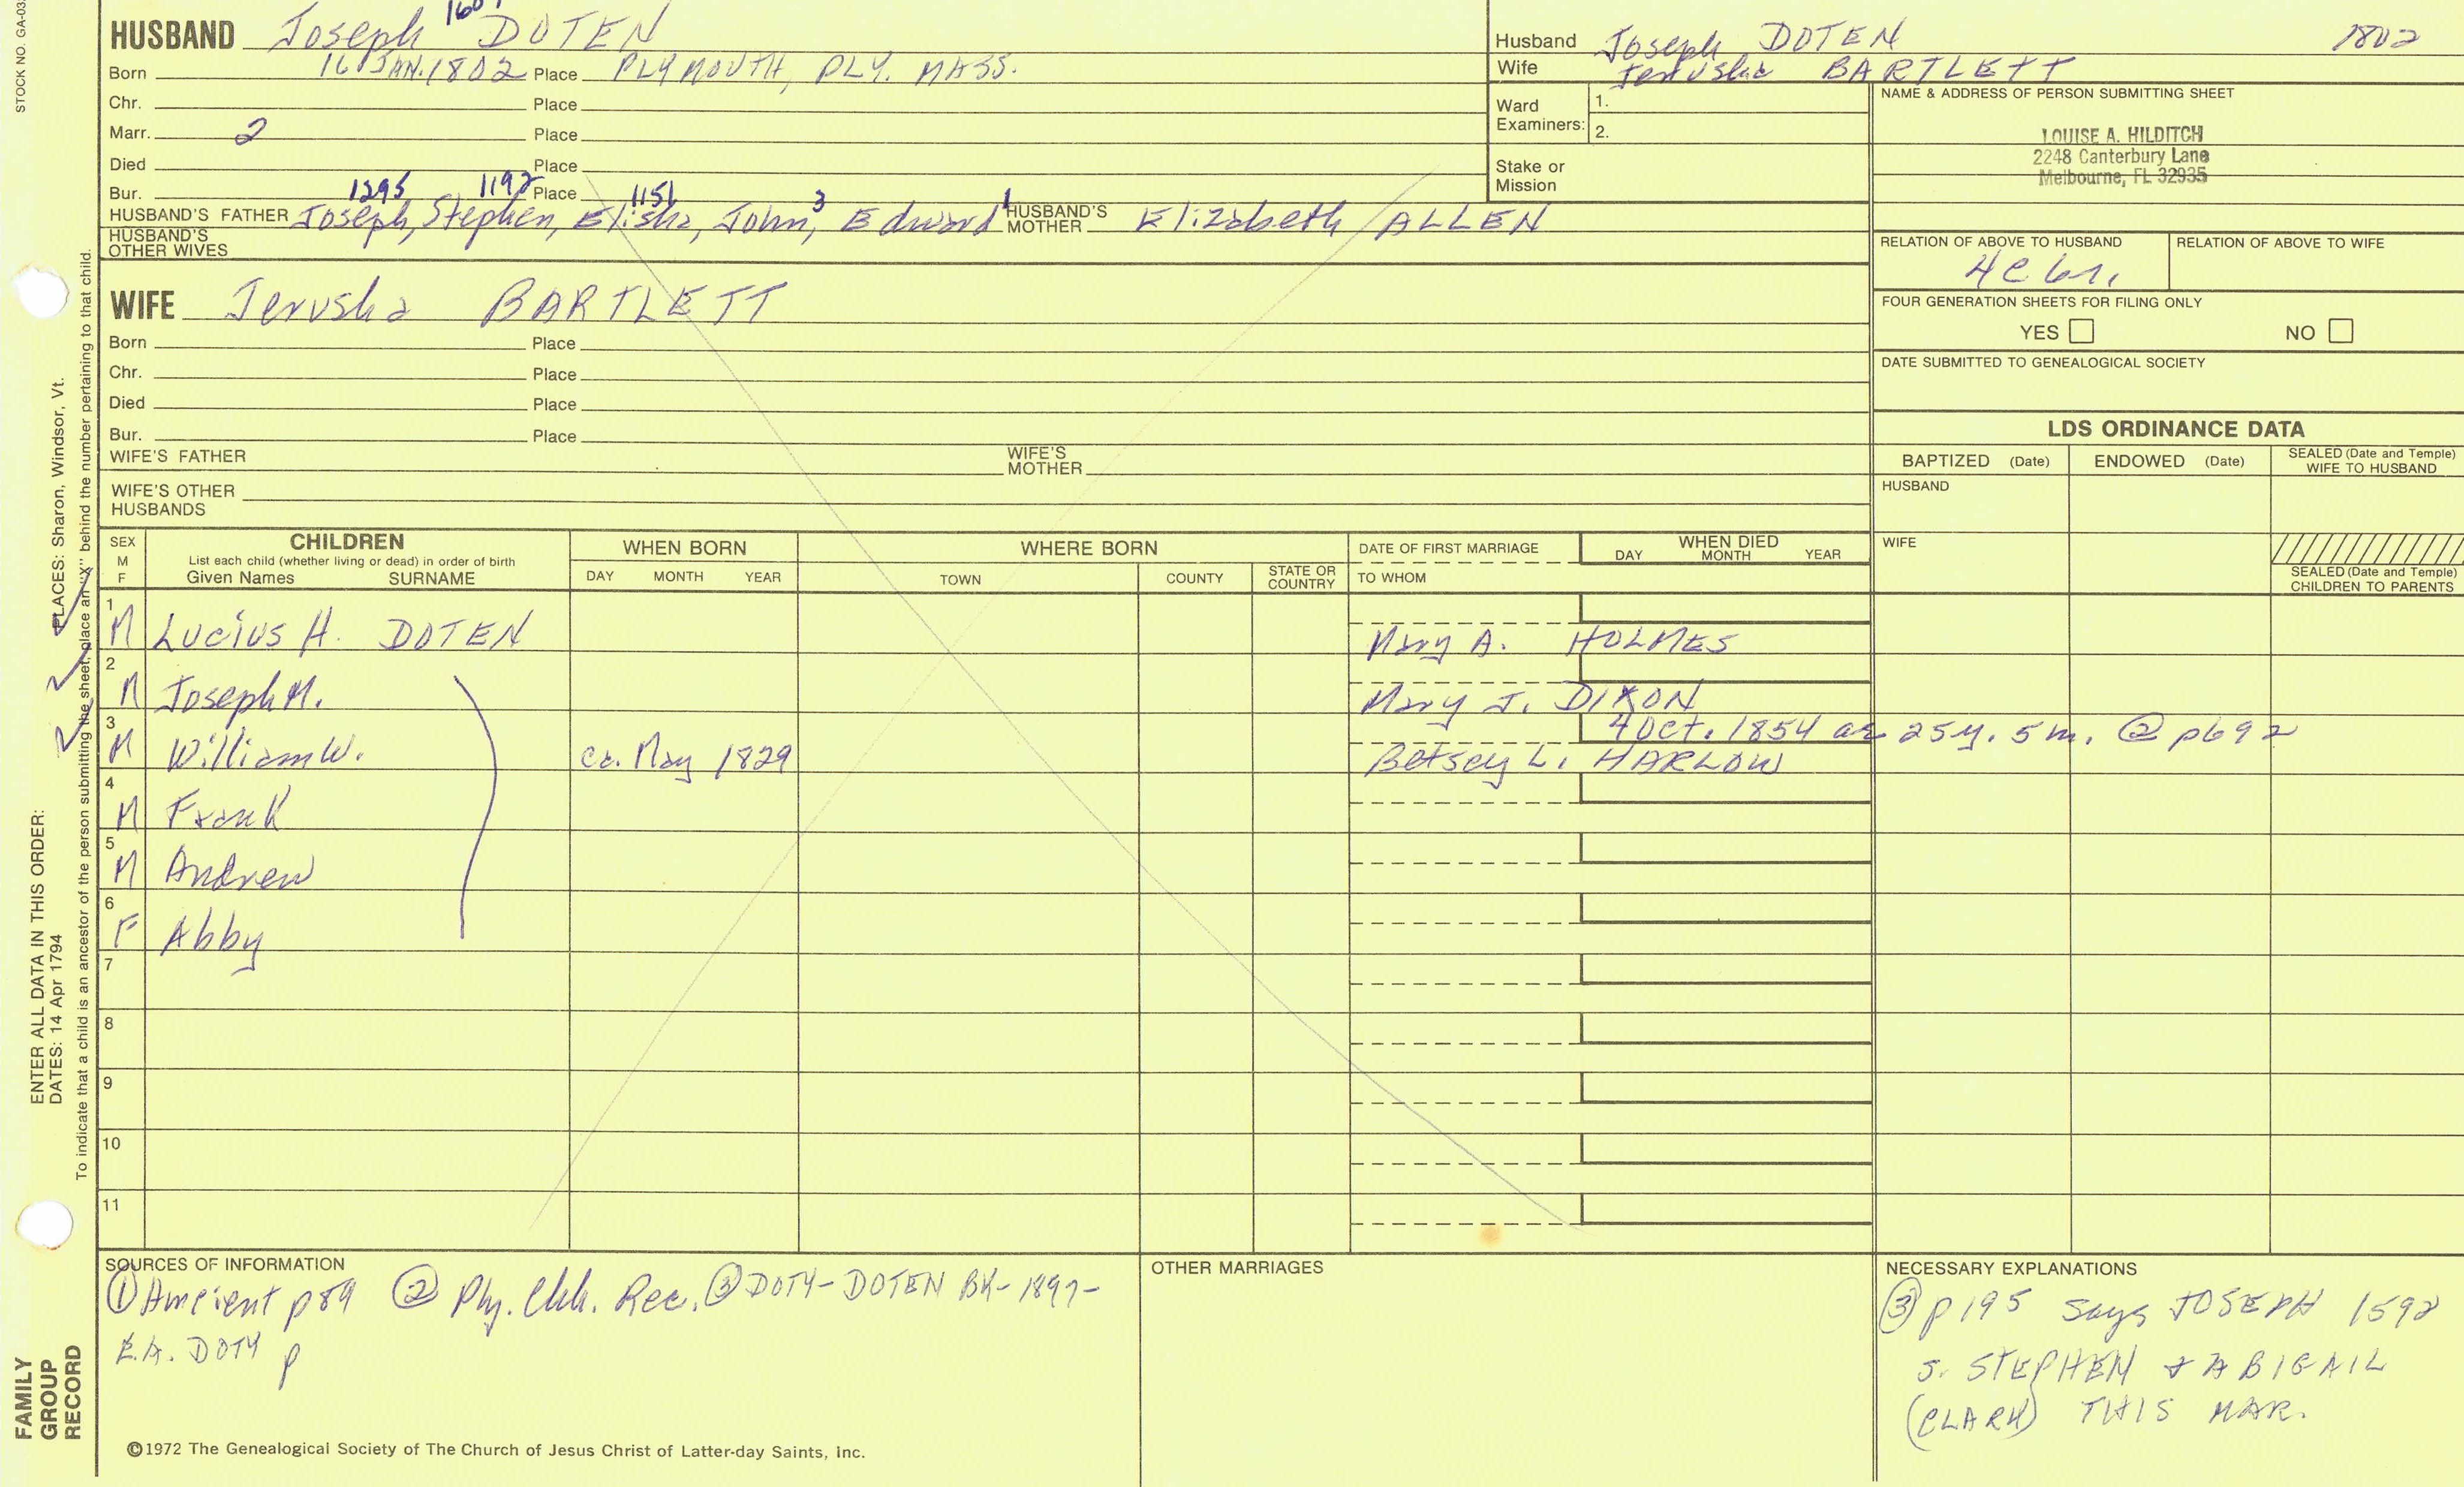 STOCK NO. GA-03
HUSBAND Joseph DOTEN
Born 16 JAN. 1802 Place PLYMOUTH, PLY. MASS.
Chr. Place
Marr. 2 Place
Died Place
Bur. Place
1295 1192 1151 3 1
HUSBAND'S FATHER Joseph, Stephen, Elisha, John, Edward HUSBAND'S MOTHER Elizabeth ALLEN
HUSBAND'S OTHER WIVES
WIFE Jerusha BARTLETT
Born Place
Chr. Place
Died Place
Bur. Place
WIFE'S FATHER WIFE'S MOTHER
WIFE'S OTHER HUSBANDS
Husband Joseph DOTEN 1802
Wife Jerusha BARTLETT
Ward Examiners: 1. 2.
Stake or Mission
NAME & ADDRESS OF PERSON SUBMITTING SHEET
LOUISE A. HILDITCH
2248 Canterbury Lane
Melbourne, FL 32935
RELATION OF ABOVE TO HUSBAND RELATION OF ABOVE TO WIFE
FOUR GENERATION SHEETS FOR FILING ONLY
YES NO
DATE SUBMITTED TO GENEALOGICAL SOCIETY
LDS ORDINANCE DATA
BAPTIZED (Date) ENDOWED (Date) SEALED (Date and Temple) WIFE TO HUSBAND
HUSBAND
WIFE
SEALED (Date and Temple) CHILDREN TO PARENTS
SEX M F
CHILDREN
List each child (whether living or dead) in order of birth
Given Names SURNAME
WHEN BORN
DAY MONTH YEAR
WHERE BORN
TOWN COUNTY STATE OR COUNTRY
DATE OF FIRST MARRIAGE
TO WHOM
WHEN DIED
DAY MONTH YEAR
1 M Lucius H. DOTEN Mary A. HOLMES
2 M Joseph M. Mary J. DIXON
3 M William W. ca. May 1829 4 Oct. 1854 ae 25y. 5m. @ p692
Betsey L. HARLOW
4 M Frank
5 M Andrew
6 F Abby
7
8
9
10
11
SOURCES OF INFORMATION
① Ancient p89 ② Ply. Chh. Rec. ③ DOTY-DOTEN BK-1897-
E.A. DOTY p
OTHER MARRIAGES
NECESSARY EXPLANATIONS
③ p195 says JOSEPH 1592
S. STEPHEN & ABIGAIL
(CLARK) THIS MAR.
©1972 The Genealogical Society of The Church of Jesus Christ of Latter-day Saints, Inc.
FAMILY GROUP RECORD
ENTER ALL DATA IN THIS ORDER:
DATES: 14 Apr 1794
PLACES: Sharon, Windsor, Vt.
To indicate that a child is an ancestor of the person submitting the sheet, place an "X" behind the number pertaining to that child.